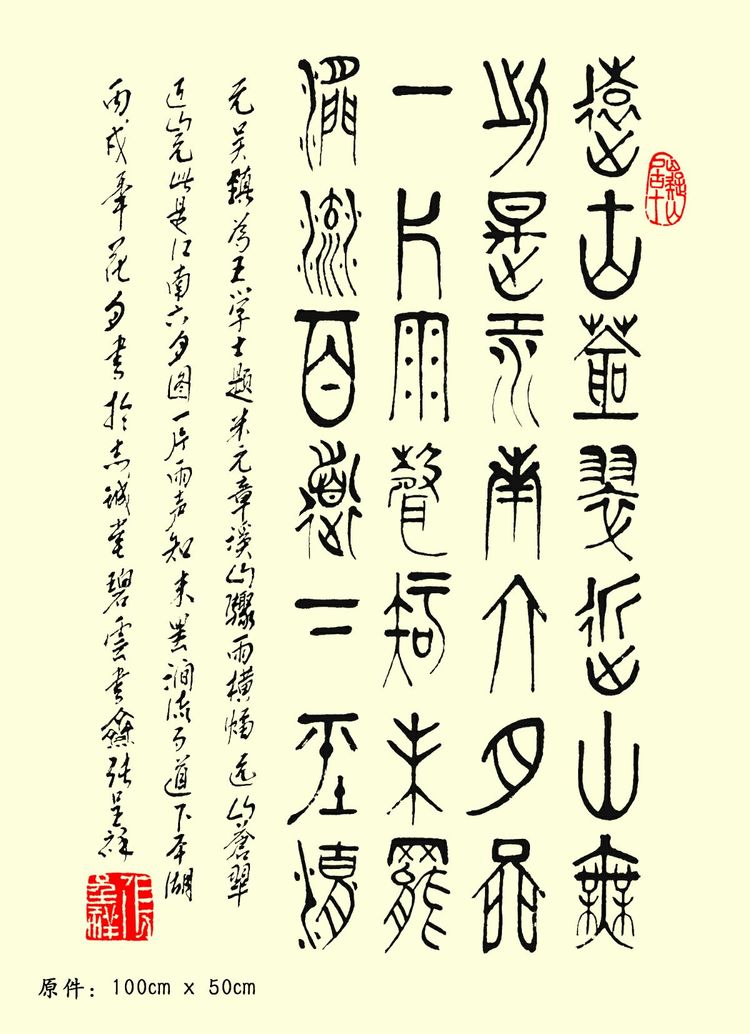 遠山蒼翠近山無
此是江南六月圖
一片雨聲知未罷
澗流百道下平湖
元吴鎮為王学士题米元章溪山骤雨横幅远山蒼翠
近山无此是江南六月图一片雨声知未罢涧流百道下平湖
丙戌年花月书於志诚堂碧雲书斋张呈祥
张呈祥
原件：100cm x 50cm